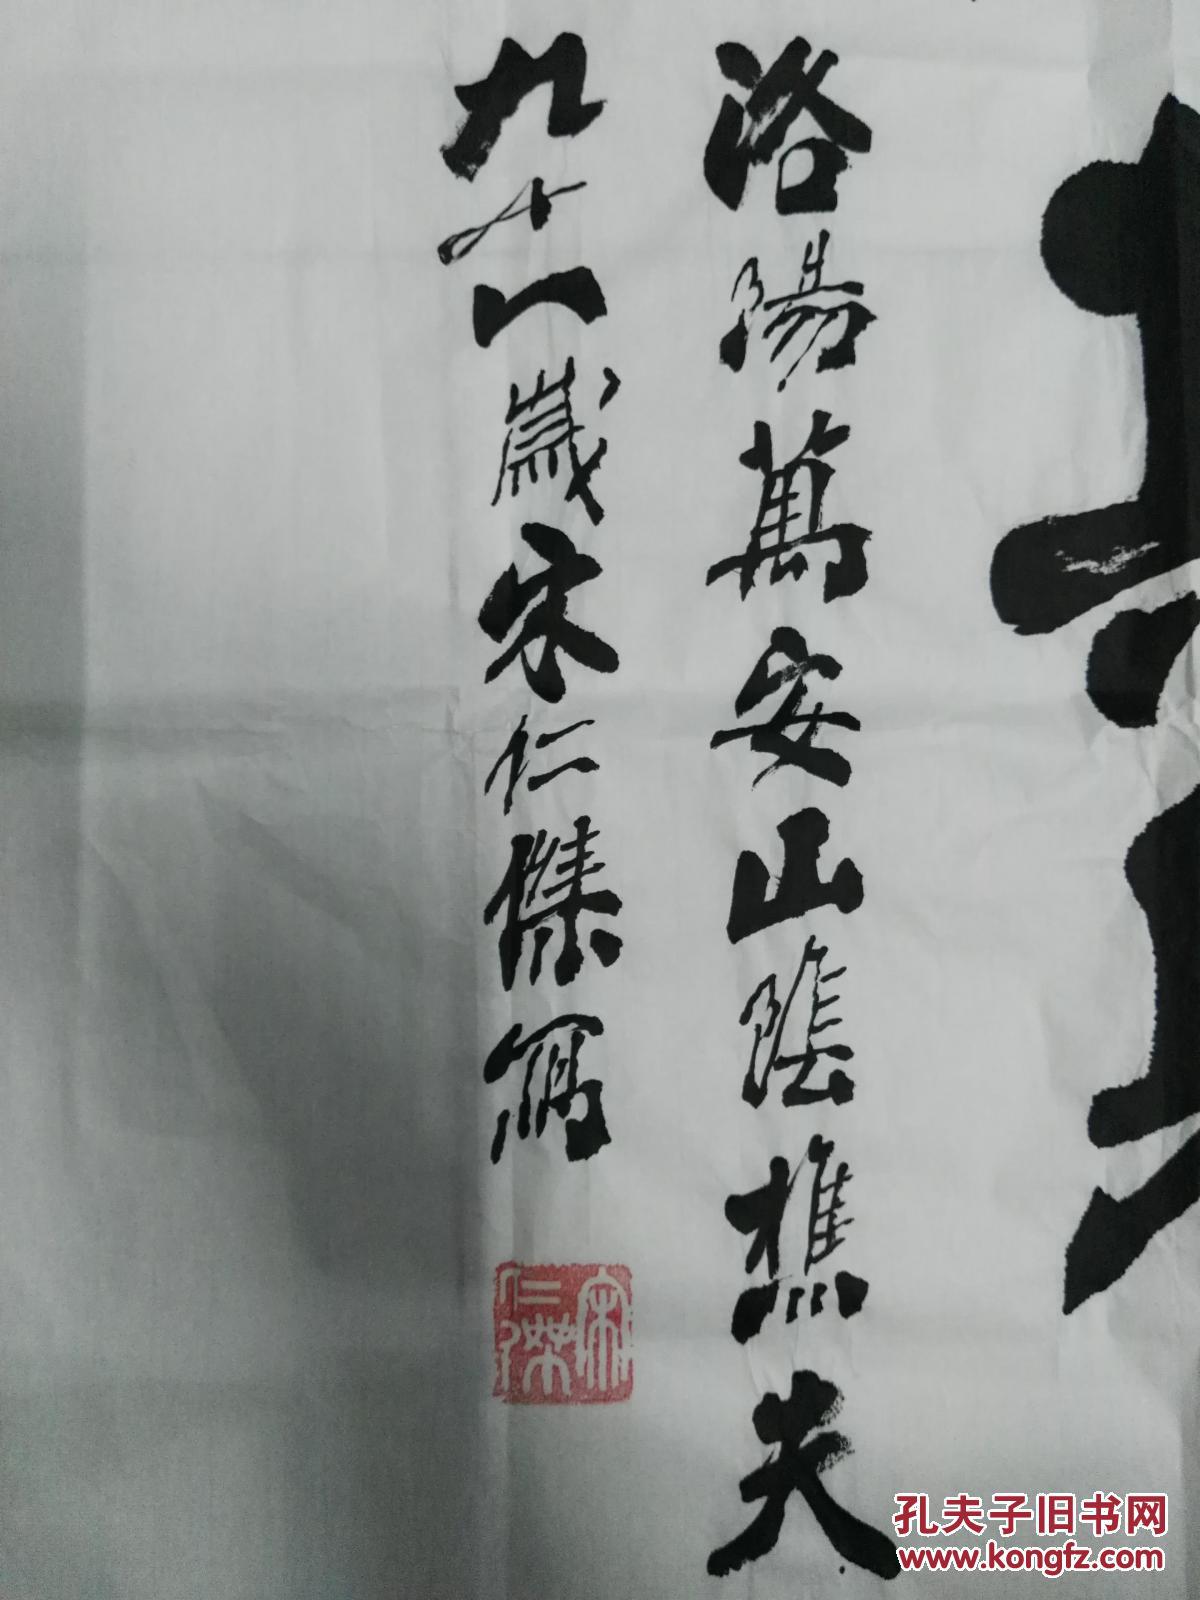 洛陽萬安山陰樵夫
九十一歲宋仁傑寫
宋仁傑
孔夫子旧书网
www.kongfz.com